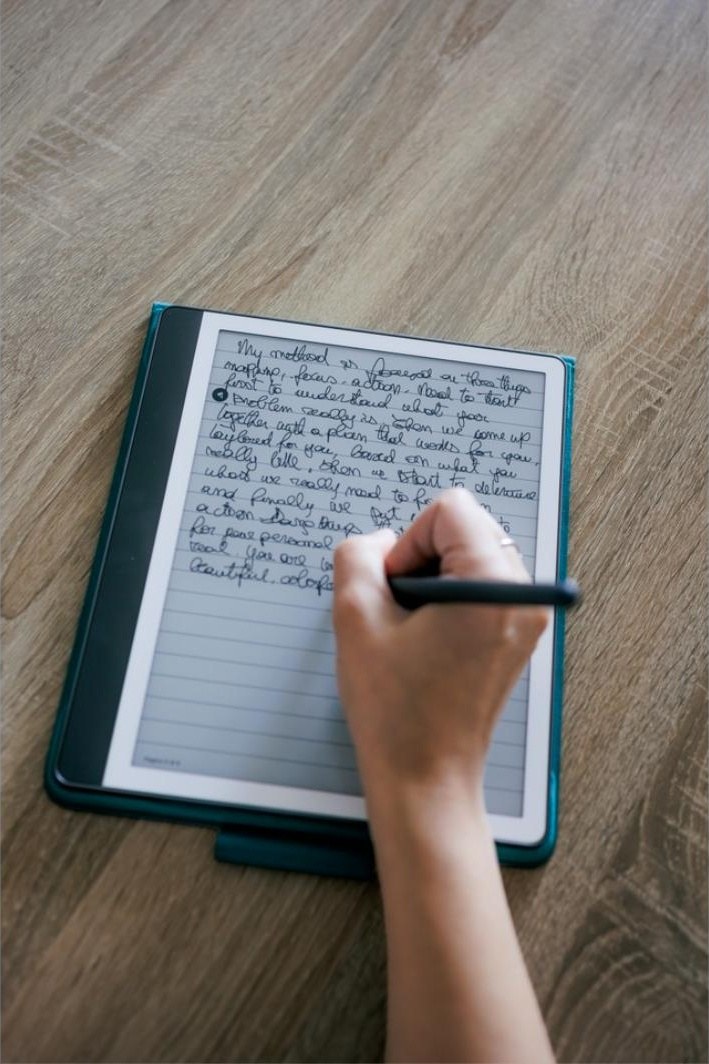 My method is focused on three things
mapping, focus, action. Need to start
first to understand what your
problem really is. Then we come up
together with a plan that works for you,
taylored for you, based on what you
really like, then we start to determine
what we really need to
and finally we put
action
for your personal
real you are
beautiful